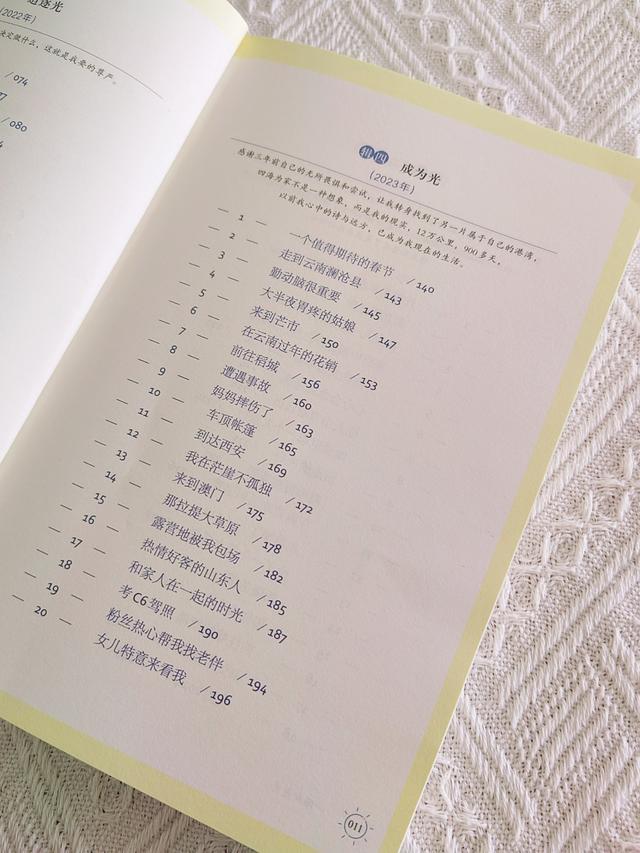 追逐光
(2022年)
决定做什么，这就是我要的尊严。
/074
/080
辑四 成为光
(2023年)
感谢三年前自己的无所畏惧和尝试，让我转身找到了另一片属于自己的港湾，
四海为家不是一种想象，而是我的现实，12万公里，900多天，
以前我心中的诗与远方，已成为我现在的生活。
— 1 — 一个值得期待的春节 /140
— 2 — 走到云南澜沧县 /143
— 3 — 勤动脑很重要 /145
— 4 — 大半夜胃疼的姑娘 /147
— 5 — 来到芒市 /150
— 6 — 在云南过年的花销 /153
— 7 — 前往稻城 /156
— 8 — 遭遇事故 /160
— 9 — 妈妈摔伤了 /163
— 10 — 车顶帐篷 /165
— 11 — 到达西安 /169
— 12 — 我在茫崖不孤独 /172
— 13 — 来到澳门 /175
— 14 — 那拉提大草原 /178
— 15 — 露营地被我包场 /182
— 16 — 热情好客的山东人 /185
— 17 — 和家人在一起的时光 /187
— 18 — 考C6驾照 /190
— 19 — 粉丝热心帮我找老伴 /194
— 20 — 女儿特意来看我 /196
011